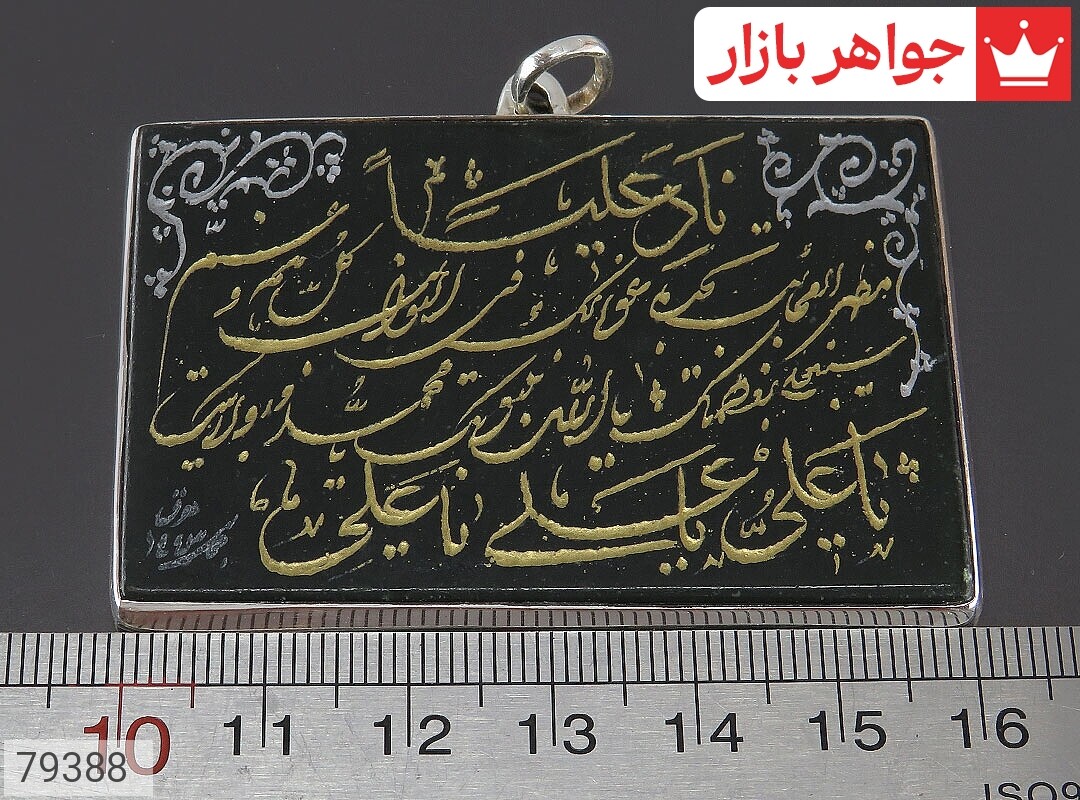 جواهر بازار
ناد علیاً
مظهر العجائب تجده عوناً لک فی النوائب کل هم و غم
سینجلی بعظمتک یا الله بنبوتک یا محمد و بولایتک
یا علی یا علی یا علی
10 11 12 13 14 15 16
79388
ISO9